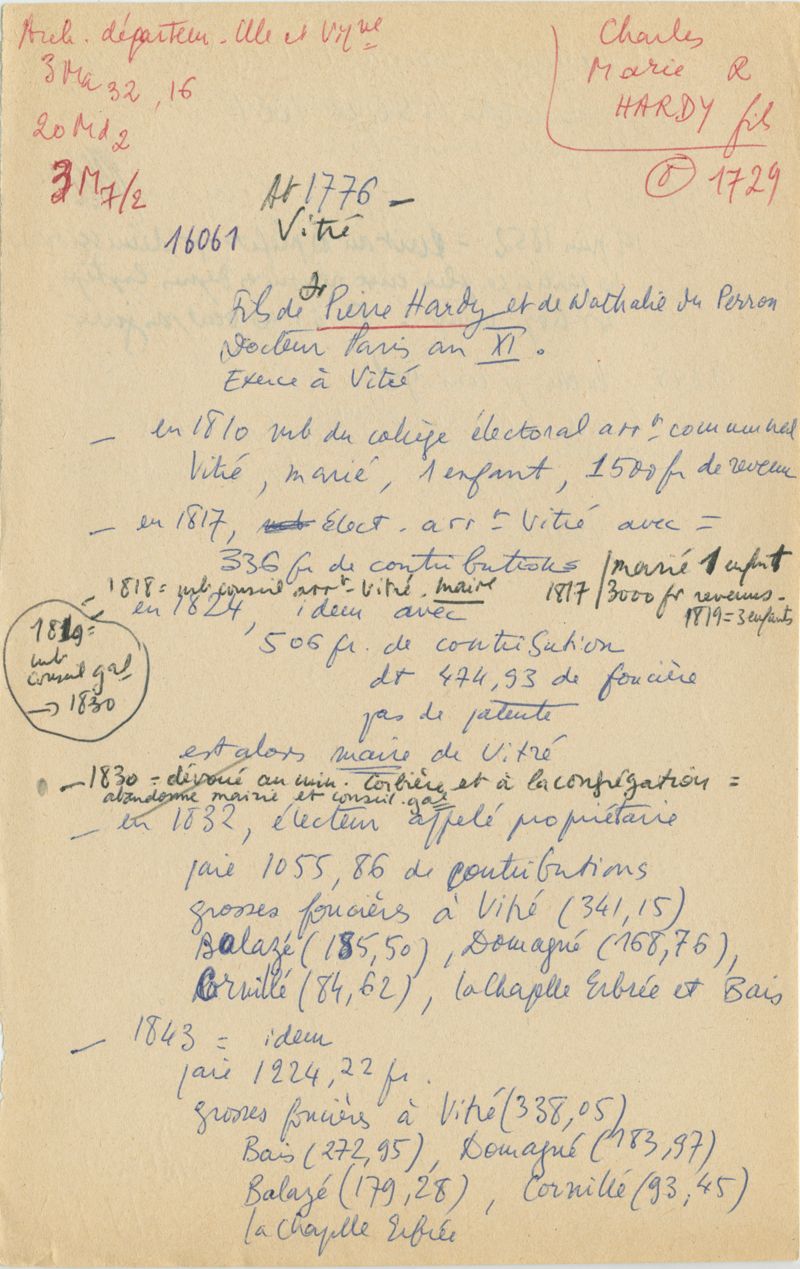 Arch. départem. Ille et Vilne
3 Ma 32, 16
20 Md 2
3 M 7/2
Charles
Marie R
HARDY fils
1729
1776 -
Vitré
16061
Fils de Dr Pierre Hardy et de Nathalie du Perron
Docteur Paris an XI.
Exerce à Vitré
- en 1810 mb du collège électoral arrt communal
Vitré, marié, 1 enfant, 1500 fr de revenu
- en 1817, élect. arrt Vitré avec =
336 fr de contributions
1817 / marié 1 enfant
/ 3000 fr revenus -
1819 = 3 enfants
- 1818 = mb conseil arrt Vitré. maire
1819 =
mb
conseil gal
→ 1830
- en 1824, idem avec
506 fr. de contribution
dt 474,93 de foncière
pas de patente
est alors maire de Vitré
- 1830 = dévoué au min. Corbière et à la congrégation =
abandonne mairie et conseil gal
- en 1832, électeur appelé propriétaire
paie 1055,86 de contributions
grosses foncières à Vitré (341,15)
Balazé (185,50), Domagné (168,76),
Cornillé (84,62), la Chaplle Erbrée et Bais
- 1843 = idem
paie 1224,22 fr.
grosses foncières à Vitré (338,05)
Bais (272,95), Domagné (183,97)
Balazé (179,28), Cornillé (93,45)
la Chaplle Erbrée